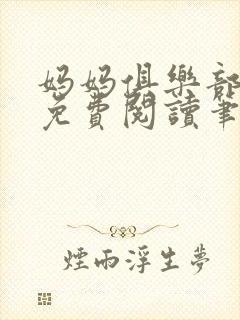 媽媽俱樂部
免費閱讀筆
煙雨浮生夢